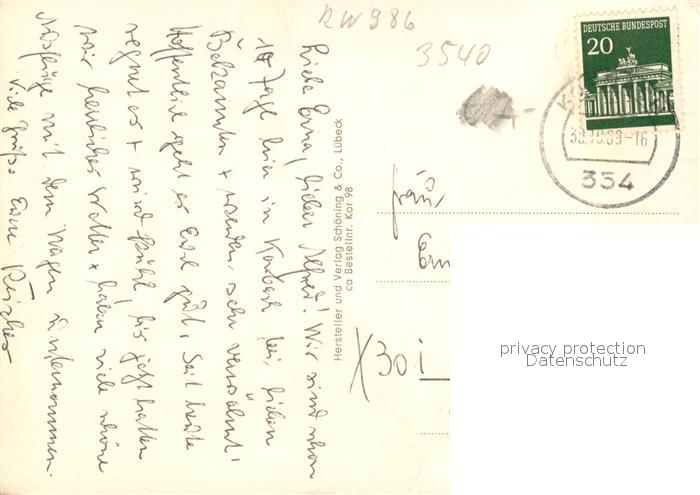 RW 986
3540
DEUTSCHE BUNDESPOST
20
K
-16
354
Liebe Erna, lieber Alfred! Wir sind schon
10 Tage hier in Korbach bei lieben
Bekannten + werden sehr verwöhnt.
Hoffentlich geht es Euch gut. Seit heute
regnet es + wird kühl, bis jetzt hatten
wir herrliches Wetter + haben viele schöne
Ausflüge mit dem Wagen unternommen.
Viele Grüße Eure
Hersteller und Verlag Schöning & Co., Lübeck
ca Bestellnr. Kor 98
Frau
Ern
X30i
privacy protection
Datenschutz